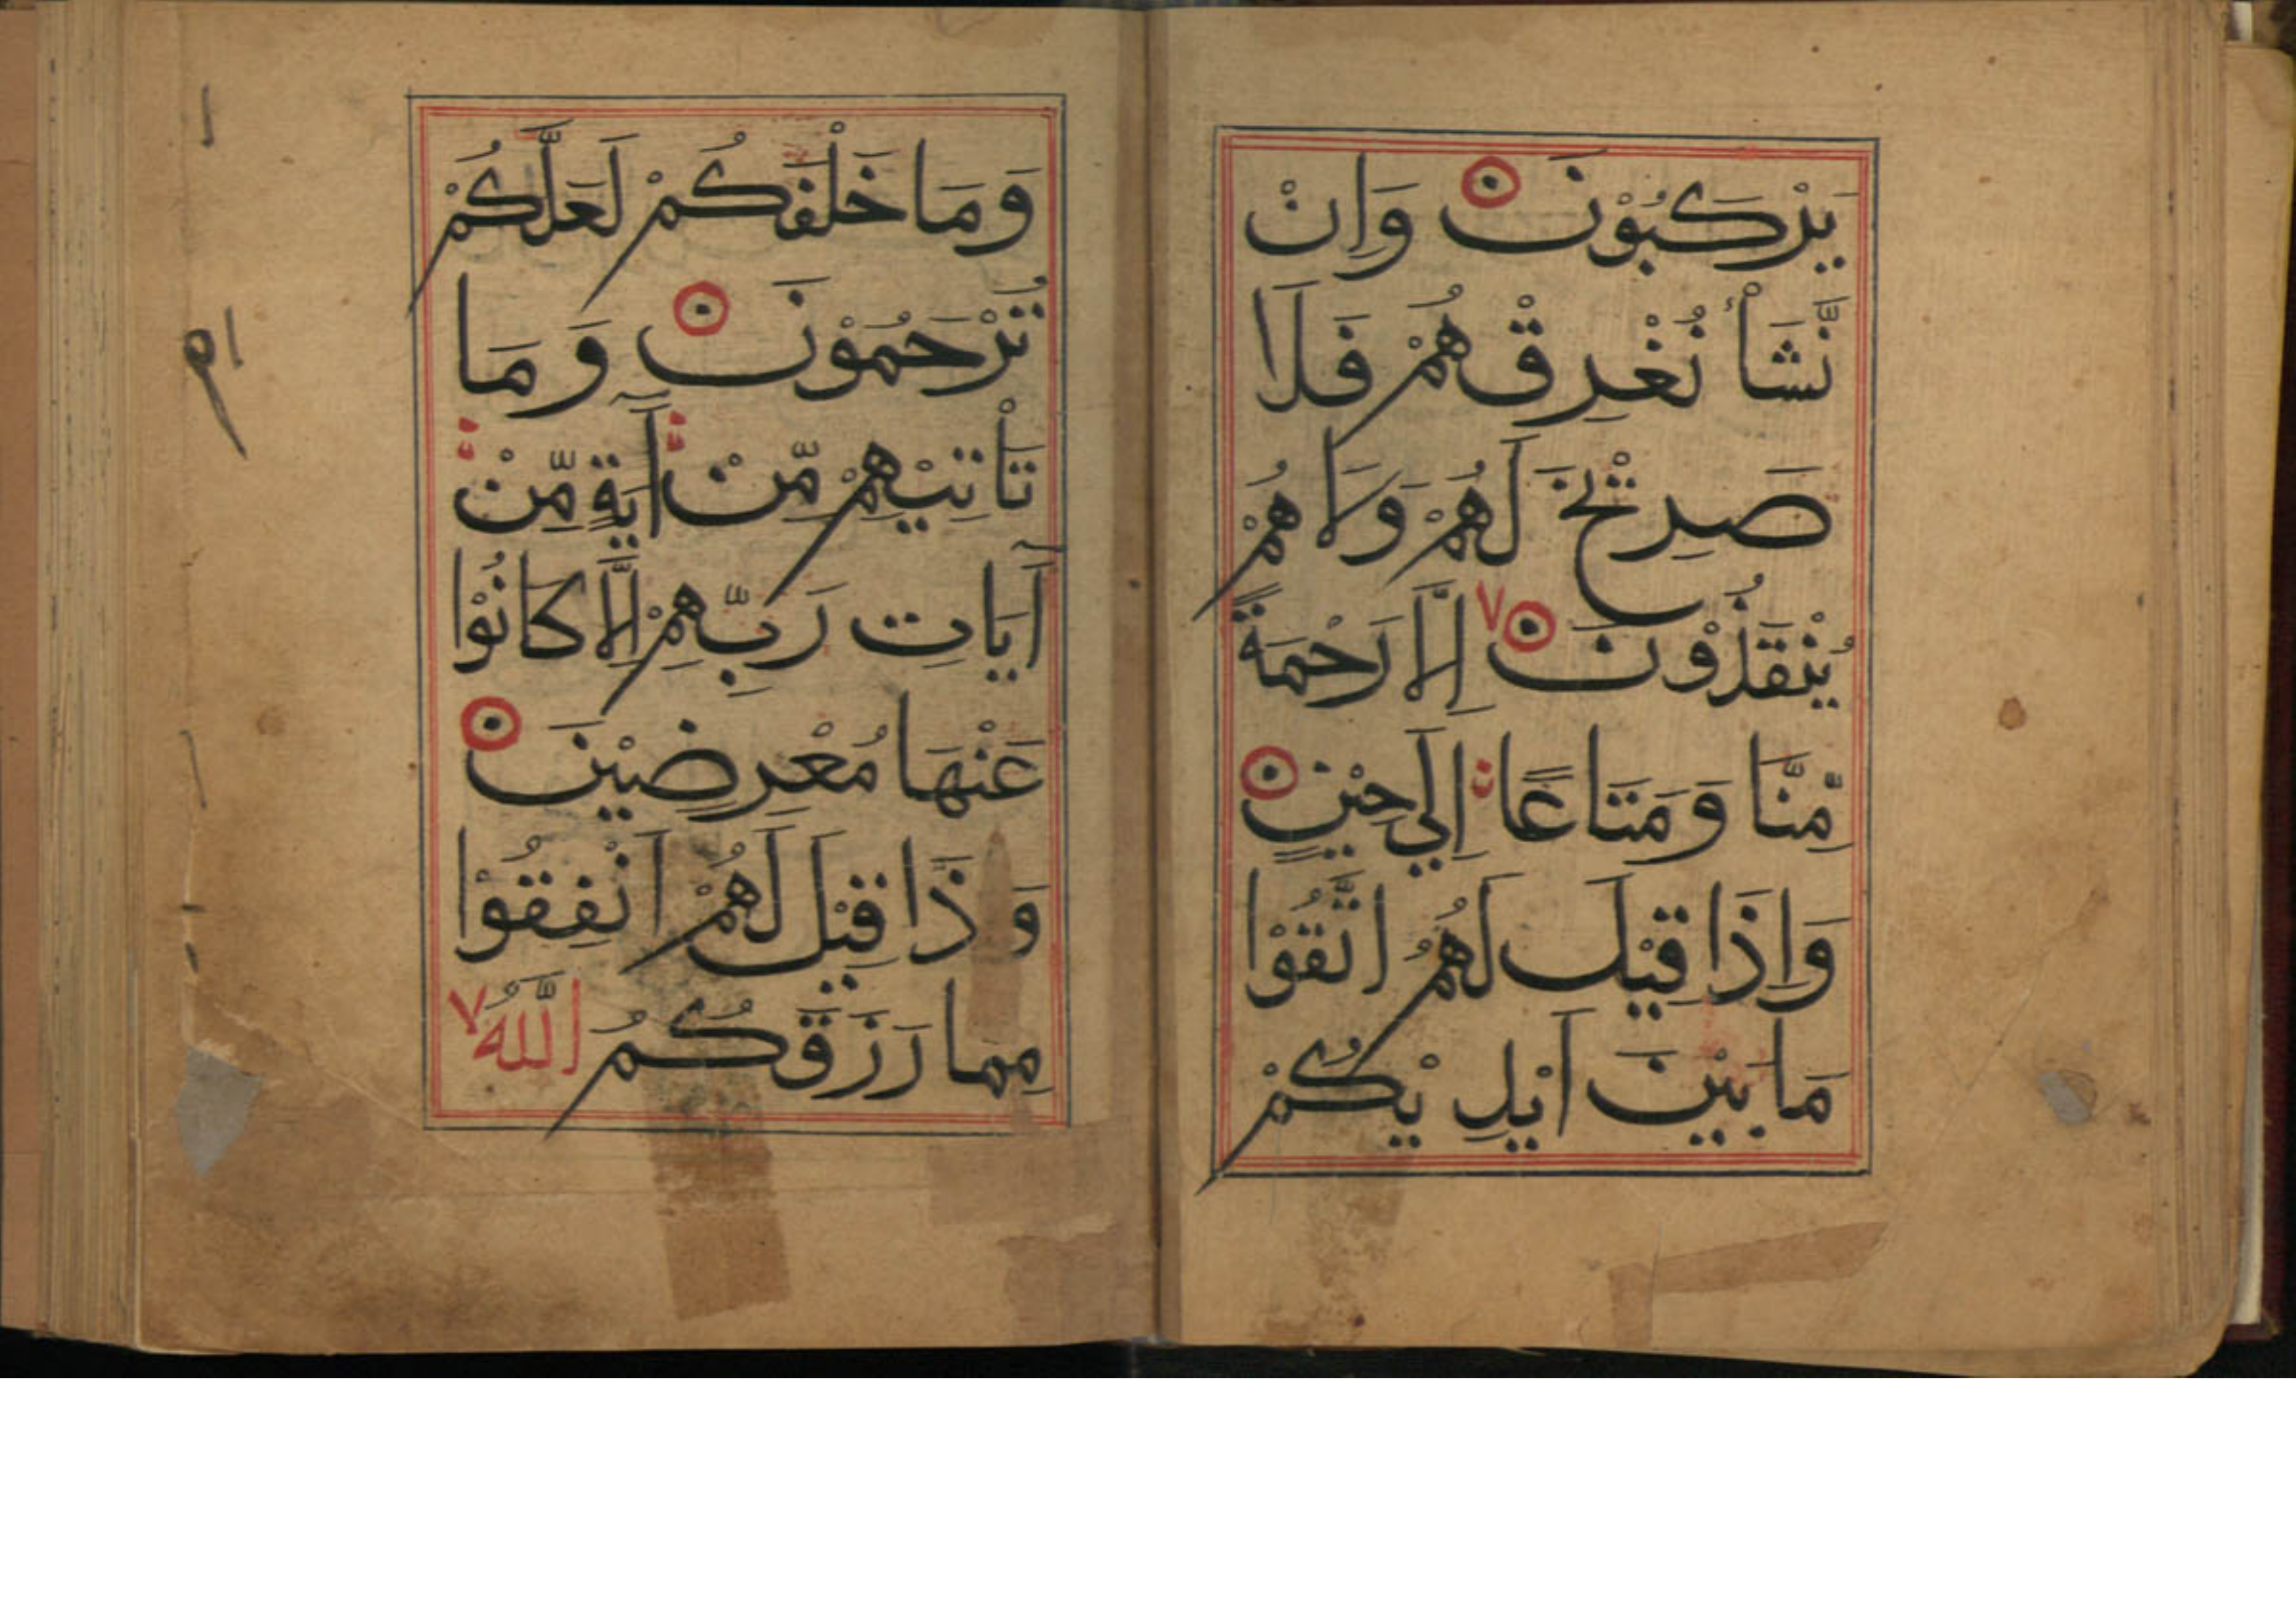 يَرْكَبُوْنَ وَاِنْ
نَّشَأْ نُغْرِقْهُمْ فَلَا
صَرِيْخَ لَهُمْ وَلَا هُمْ
يُنْقَذُوْنَ ٧ اِلَّا رَحْمَةً
مِّنَّا وَمَتَاعًا اِلَي حِيْنٍ
وَاِذَا قِيْلَ لَهُمُ اتَّقُوْا
مَا بَيْنَ اَيْدِيْكُمْ
وَمَا خَلْفَكُمْ لَعَلَّكُمْ
تُرْحَمُوْنَ وَمَا
تَأْتِيْهِمْ مِّنْ آيَةٍ مِّنْ
آيَاتِ رَبِّهِمْ اِلَّا كَانُوْا
عَنْهَا مُعْرِضِيْنَ
وَذَّا قِيْلَ لَهُمْ اَنْفِقُوْا
مِمَا رَزَقَكُمُ اللَّهُ ٧